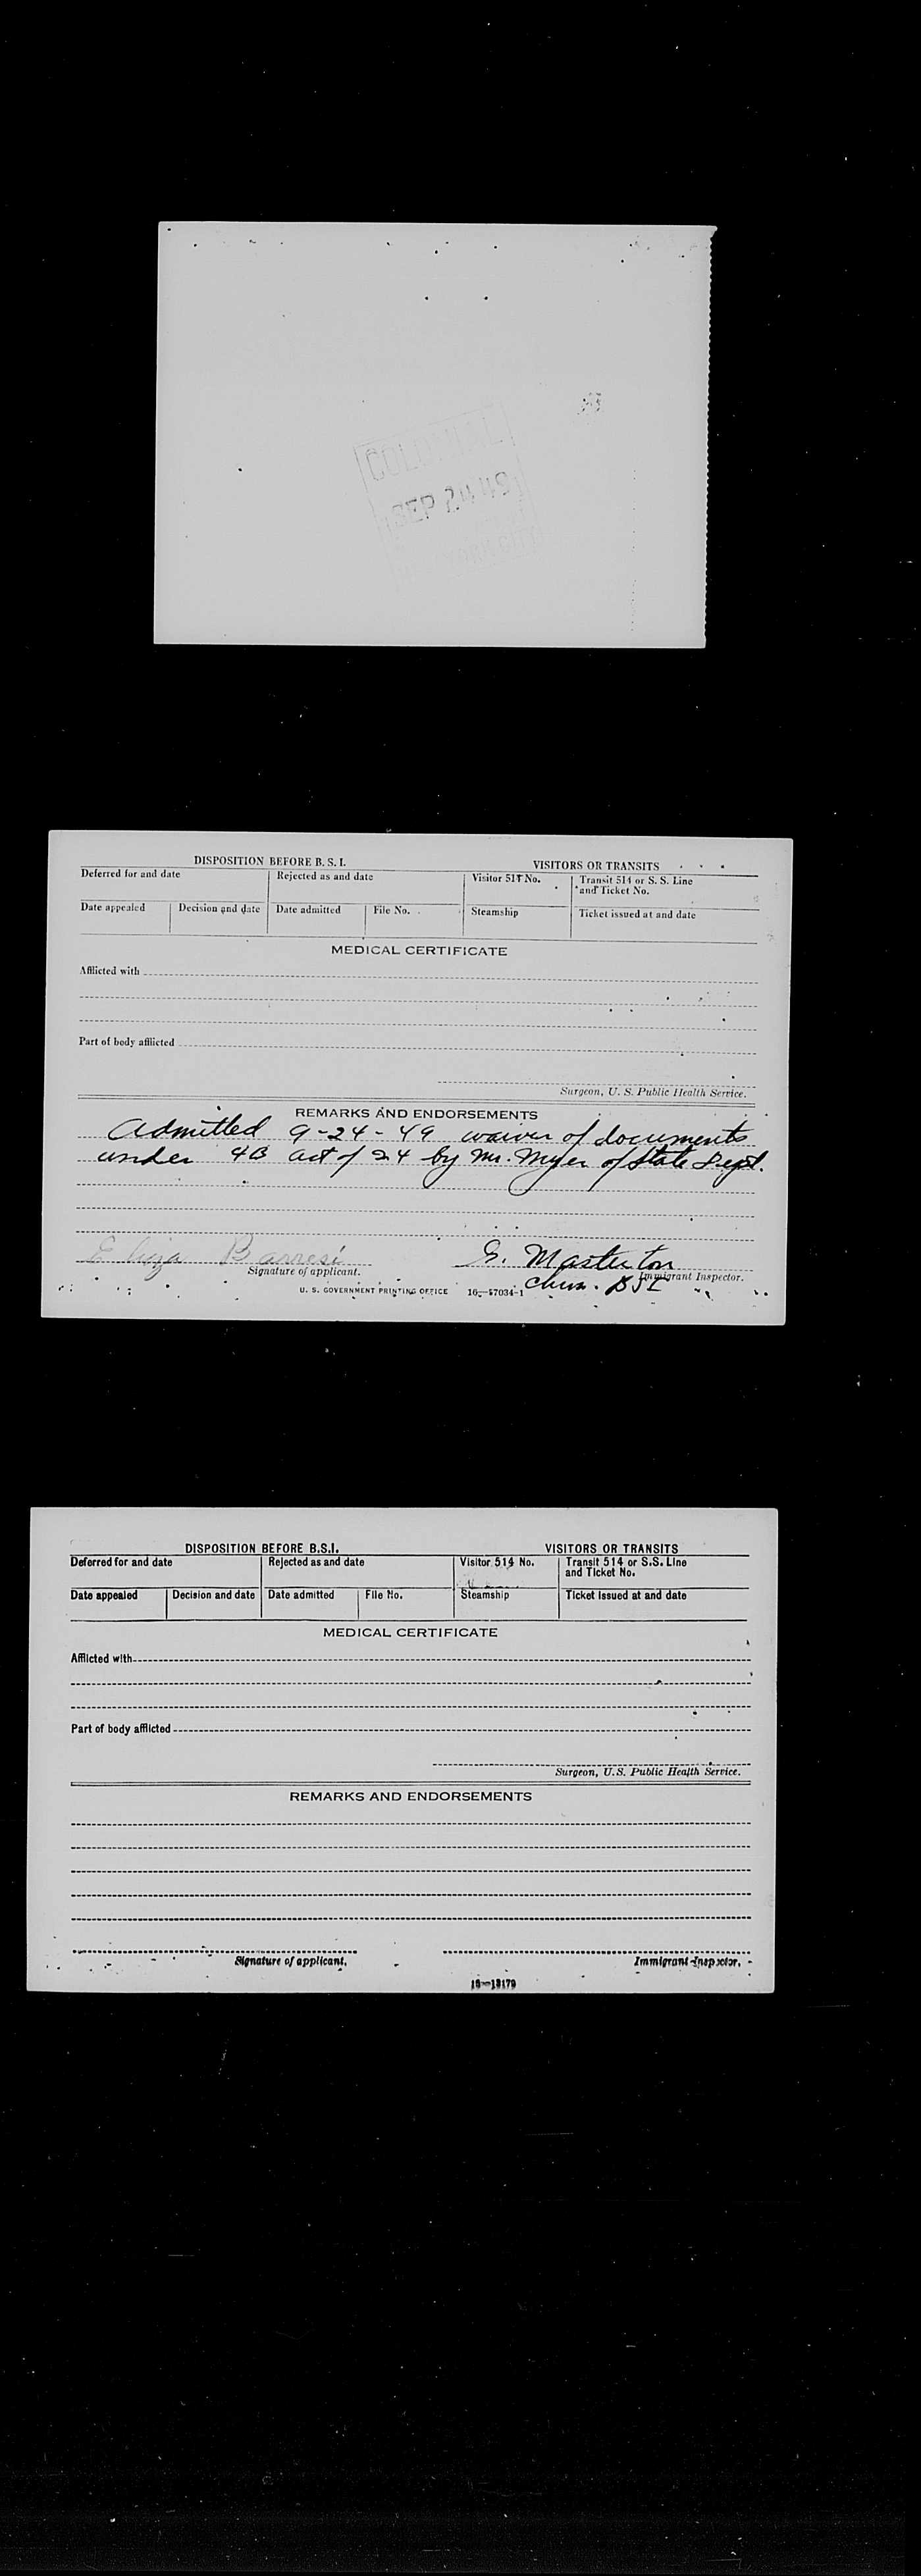 SEP 24 49
DISPOSITION BEFORE B. S. I. VISITORS OR TRANSITS
Deferred for and date Rejected as and date Visitor 514 No. Transit 514 or S. S. Line
and Ticket No.
Date appealed Decision and date Date admitted File No. Steamship Ticket issued at and date
MEDICAL CERTIFICATE
Afflicted with
Part of body afflicted
Surgeon, U. S. Public Health Service.
REMARKS AND ENDORSEMENTS
Admitted 9-24-49 waiver of documents
under 4B act of 24 by Mr. Myer of State Dept.
Barresi G. Masterton
Signature of applicant. Immigrant Inspector.
Chm. BSI
U. S. GOVERNMENT PRINTING OFFICE 16—57034-1
DISPOSITION BEFORE B.S.I. VISITORS OR TRANSITS
Deferred for and date Rejected as and date Visitor 514 No. Transit 514 or S.S. Line
and Ticket No.
Date appealed Decision and date Date admitted File No. Steamship Ticket issued at and date
MEDICAL CERTIFICATE
Afflicted with
Part of body afflicted
Surgeon, U.S. Public Health Service.
REMARKS AND ENDORSEMENTS
Signature of applicant. Immigrant Inspector.
16—13179